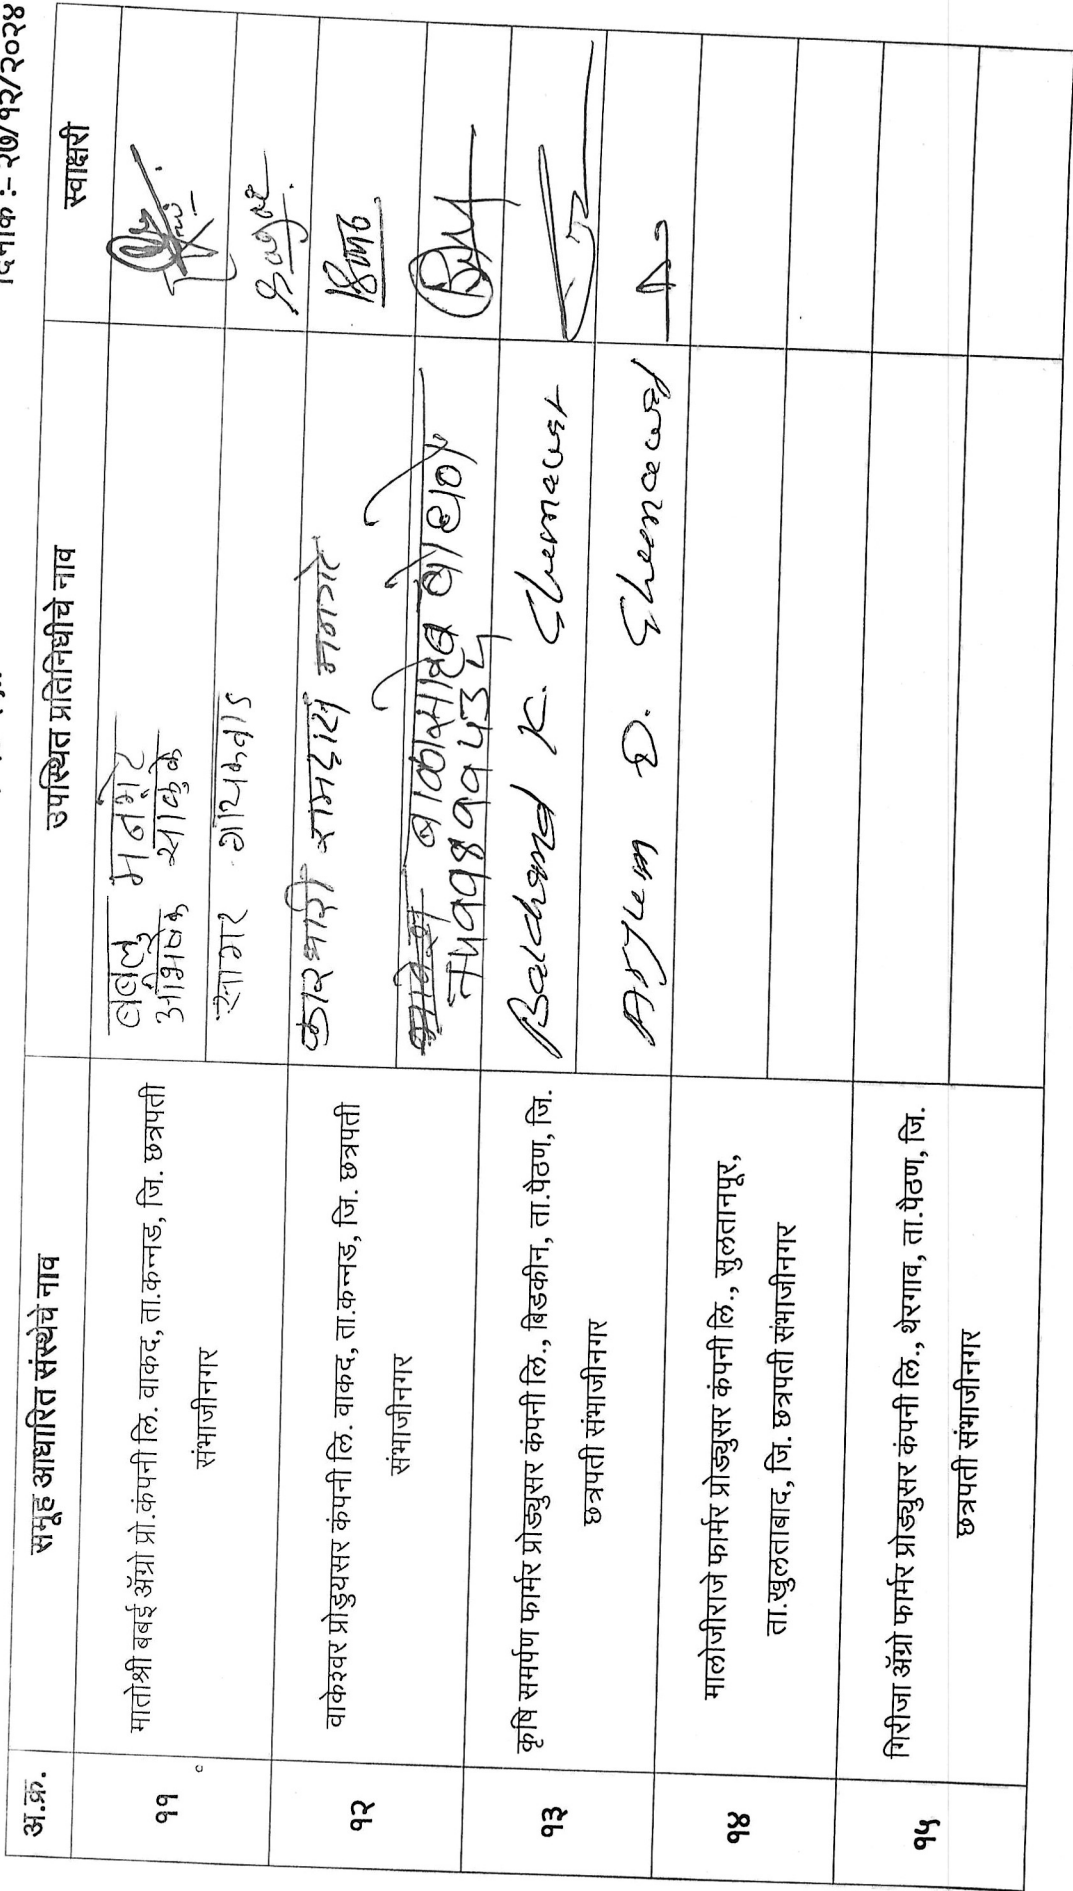 दिनांक : २७/१२/२०२४
अ.क्र.
समूह आधारित संस्थेचे नाव
उपस्थित प्रतिनिधीचे नाव
स्वाक्षरी
११
मातोश्री बबई अ‍ॅग्रो प्रो.कंपनी लि. वाकद, ता.कन्नड, जि. छत्रपती
संभाजीनगर
बबलू मनगटे
अभिषेक साळुंके
सागर गायकवाड
सागर
१२
वाकेश्वर प्रोड्युयसर कंपनी लि. वाकद, ता.कन्नड, जि. छत्रपती
संभाजीनगर
कारभारी रामदास मनगटे
बाळासाहेब
१३
कृषि समर्पण फार्मर प्रोड्युसर कंपनी लि., बिडकीन, ता.पैठण, जि.
छत्रपती संभाजीनगर
Balchand K. Ghunawat
D. Ghunawat
१४
मालोजीराजे फार्मर प्रोड्युसर कंपनी लि., सुलतानपूर,
ता.खुलताबाद, जि. छत्रपती संभाजीनगर
१५
गिरीजा अ‍ॅग्रो फार्मर प्रोड्युसर कंपनी लि., थेरगाव, ता.पैठण, जि.
छत्रपती संभाजीनगर